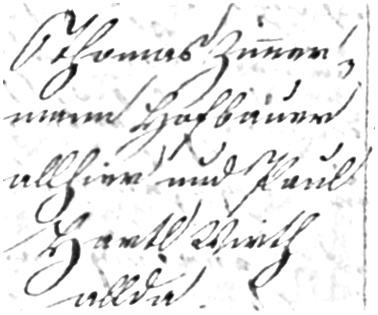 Thomas Zimer-
mann Hofbauer
allhier und Paul
Hartl Wirth
allda.